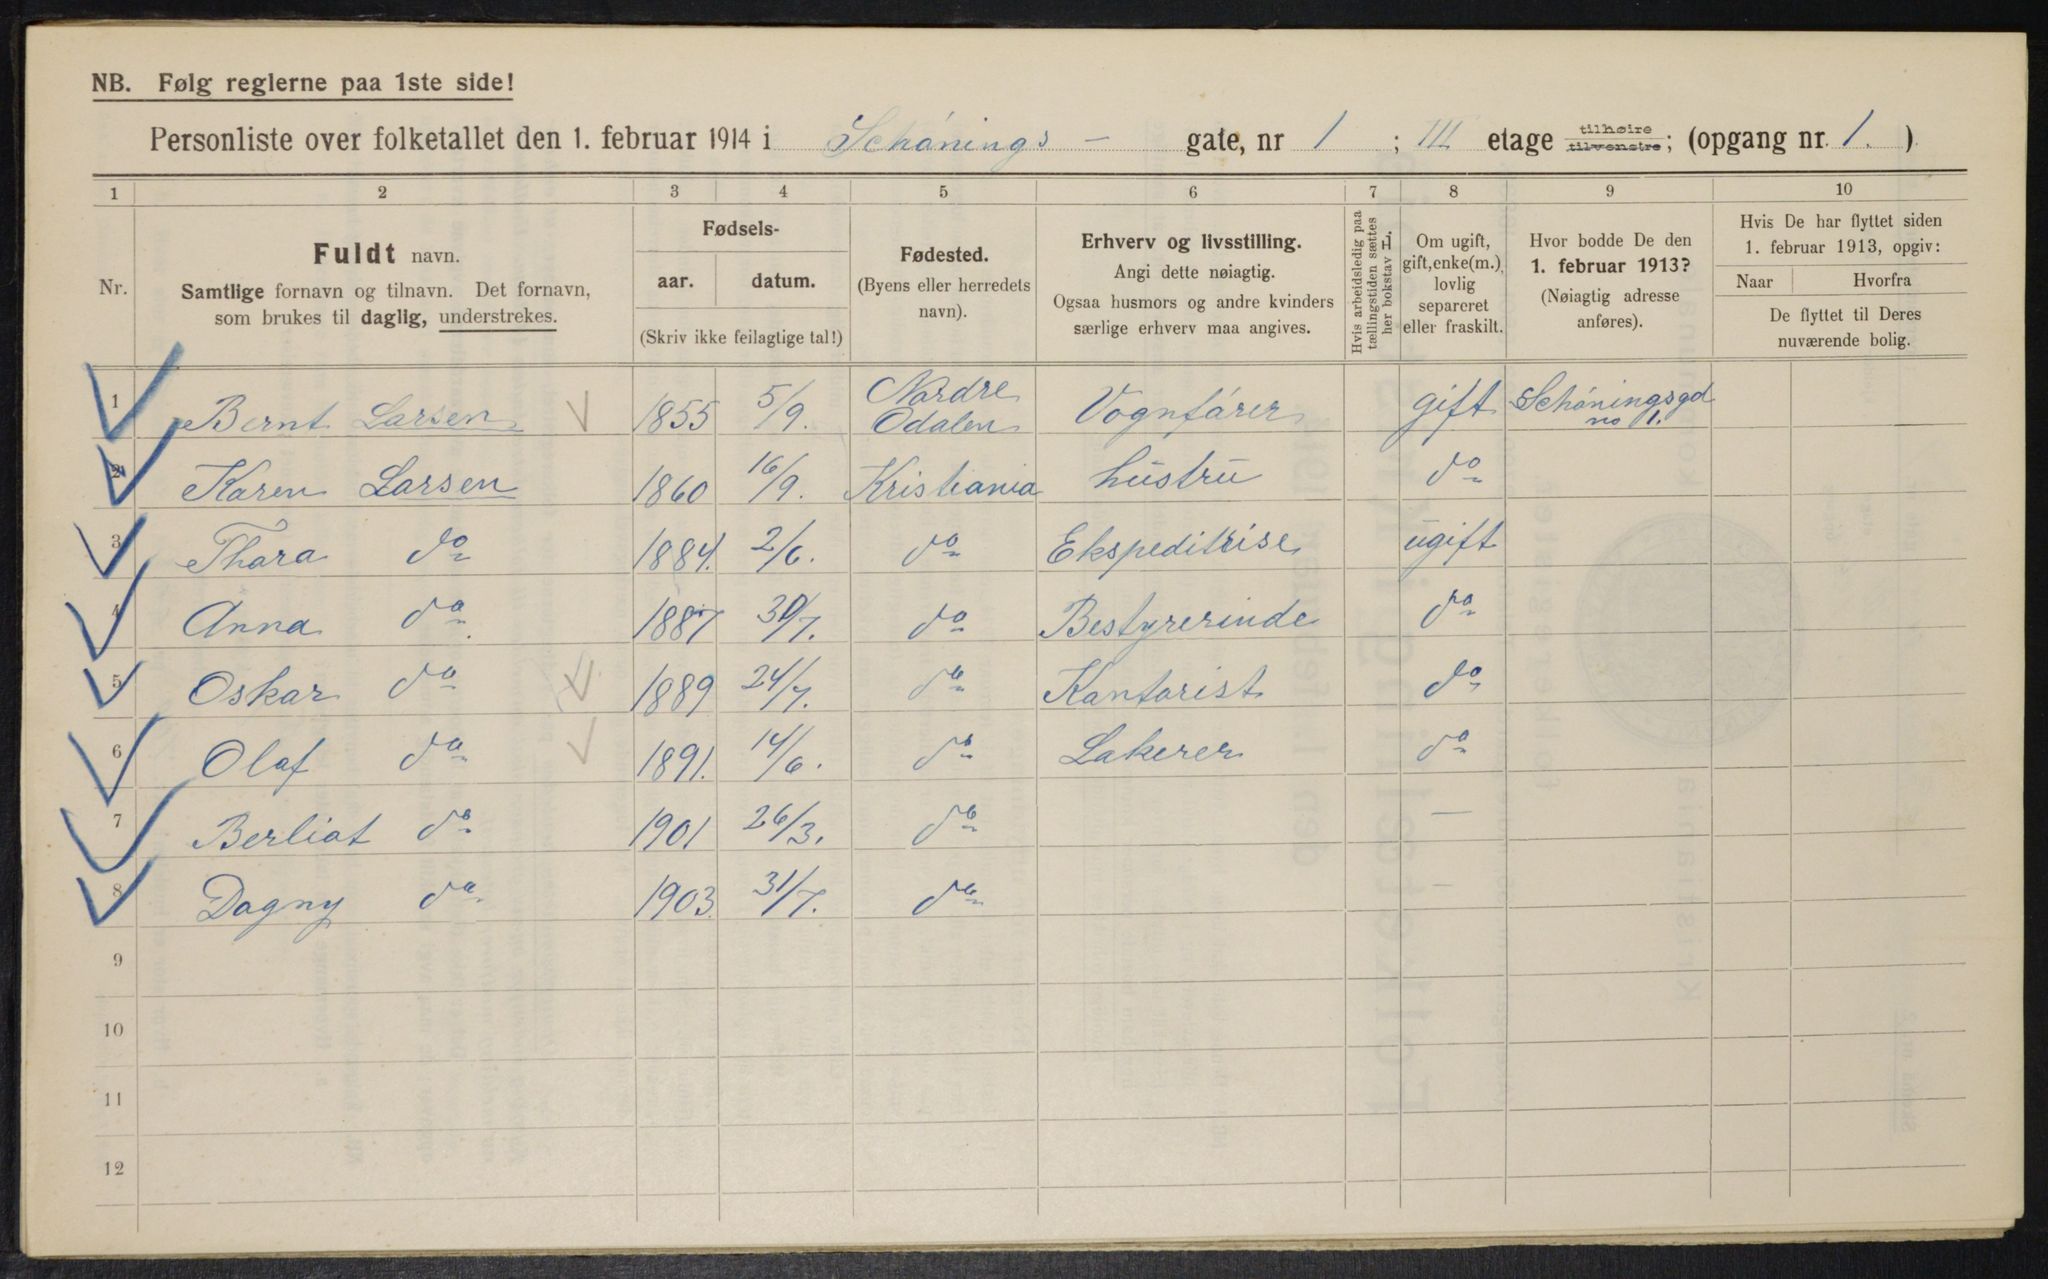 NB. Følg reglerne paa 1ste side!
Personliste over folketallet den 1. februar 1914 i Schønings - gate, nr 1 ; III etage tilhøire tilvenstre; (opgang nr. 1. )
1 2 3 4 5 6 7 8 9 10
Nr.
Fuldt navn.
Samtlige fornavn og tilnavn. Det fornavn,
som brukes til daglig, understrekes.
Fødsels-
aar. datum.
(Skriv ikke feilagtige tal!)
Fødested.
(Byens eller herredets
navn).
Erhverv og livsstilling.
Angi dette nøiagtig.
Ogsaa husmors og andre kvinders
særlige erhverv maa angives.
Hvis arbeidsledig paa
tællingstiden sættes
her bokstav L.
Om ugift,
gift, enke(m.),
lovlig
separeret
eller fraskilt.
Hvor bodde De den
1. februar 1913?
(Nøiagtig adresse
anføres).
Hvis De har flyttet siden
1. februar 1913, opgiv:
Naar Hvorfra
De flyttet til Deres
nuværende bolig.
1 Bernt Larsen 1855 5/9. Nordre Odalen Vognfører gift Schøningsgd no 1.
2 Karen Larsen 1860 16/9. Kristiania hustru do
3 Thora do 1884. 2/6. do Ekspeditrise ugift
4 Anna do 1887 30/7. do Bestyrerinde do
5 Oskar do 1889 24/7. do Kontorist do
6 Olaf do 1891. 14/6. do Lakerer do
7 Berliot do 1901 26/3. do —
8 Dagny do 1903. 31/7. do —
9
10
11
12